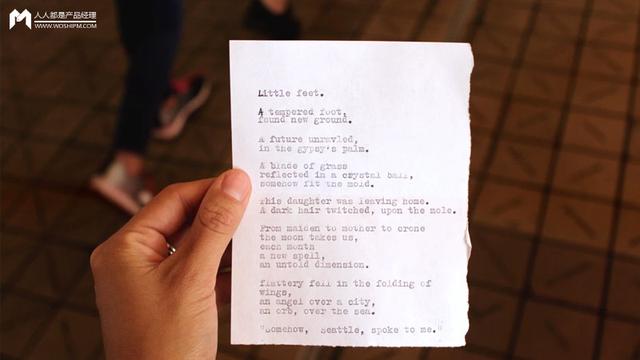 人人都是产品经理
WWW.WOSHIPM.COM
Little feet.
A tempered foot,
found new ground.
A future unravled,
in the gypsy's palm.
A blade of grass
reflected in a crystal ball,
somehow fit the mold.
This daughter was leaving home.
A dark hair twitched, upon the mole.
From maiden to mother to crone
the moon takes us,
each month
a new spell,
an untold dimension.
flattery fell in the folding of
wings,
an angel over a city,
an orb, over the sea.
"Somehow, Seattle, spoke to me."